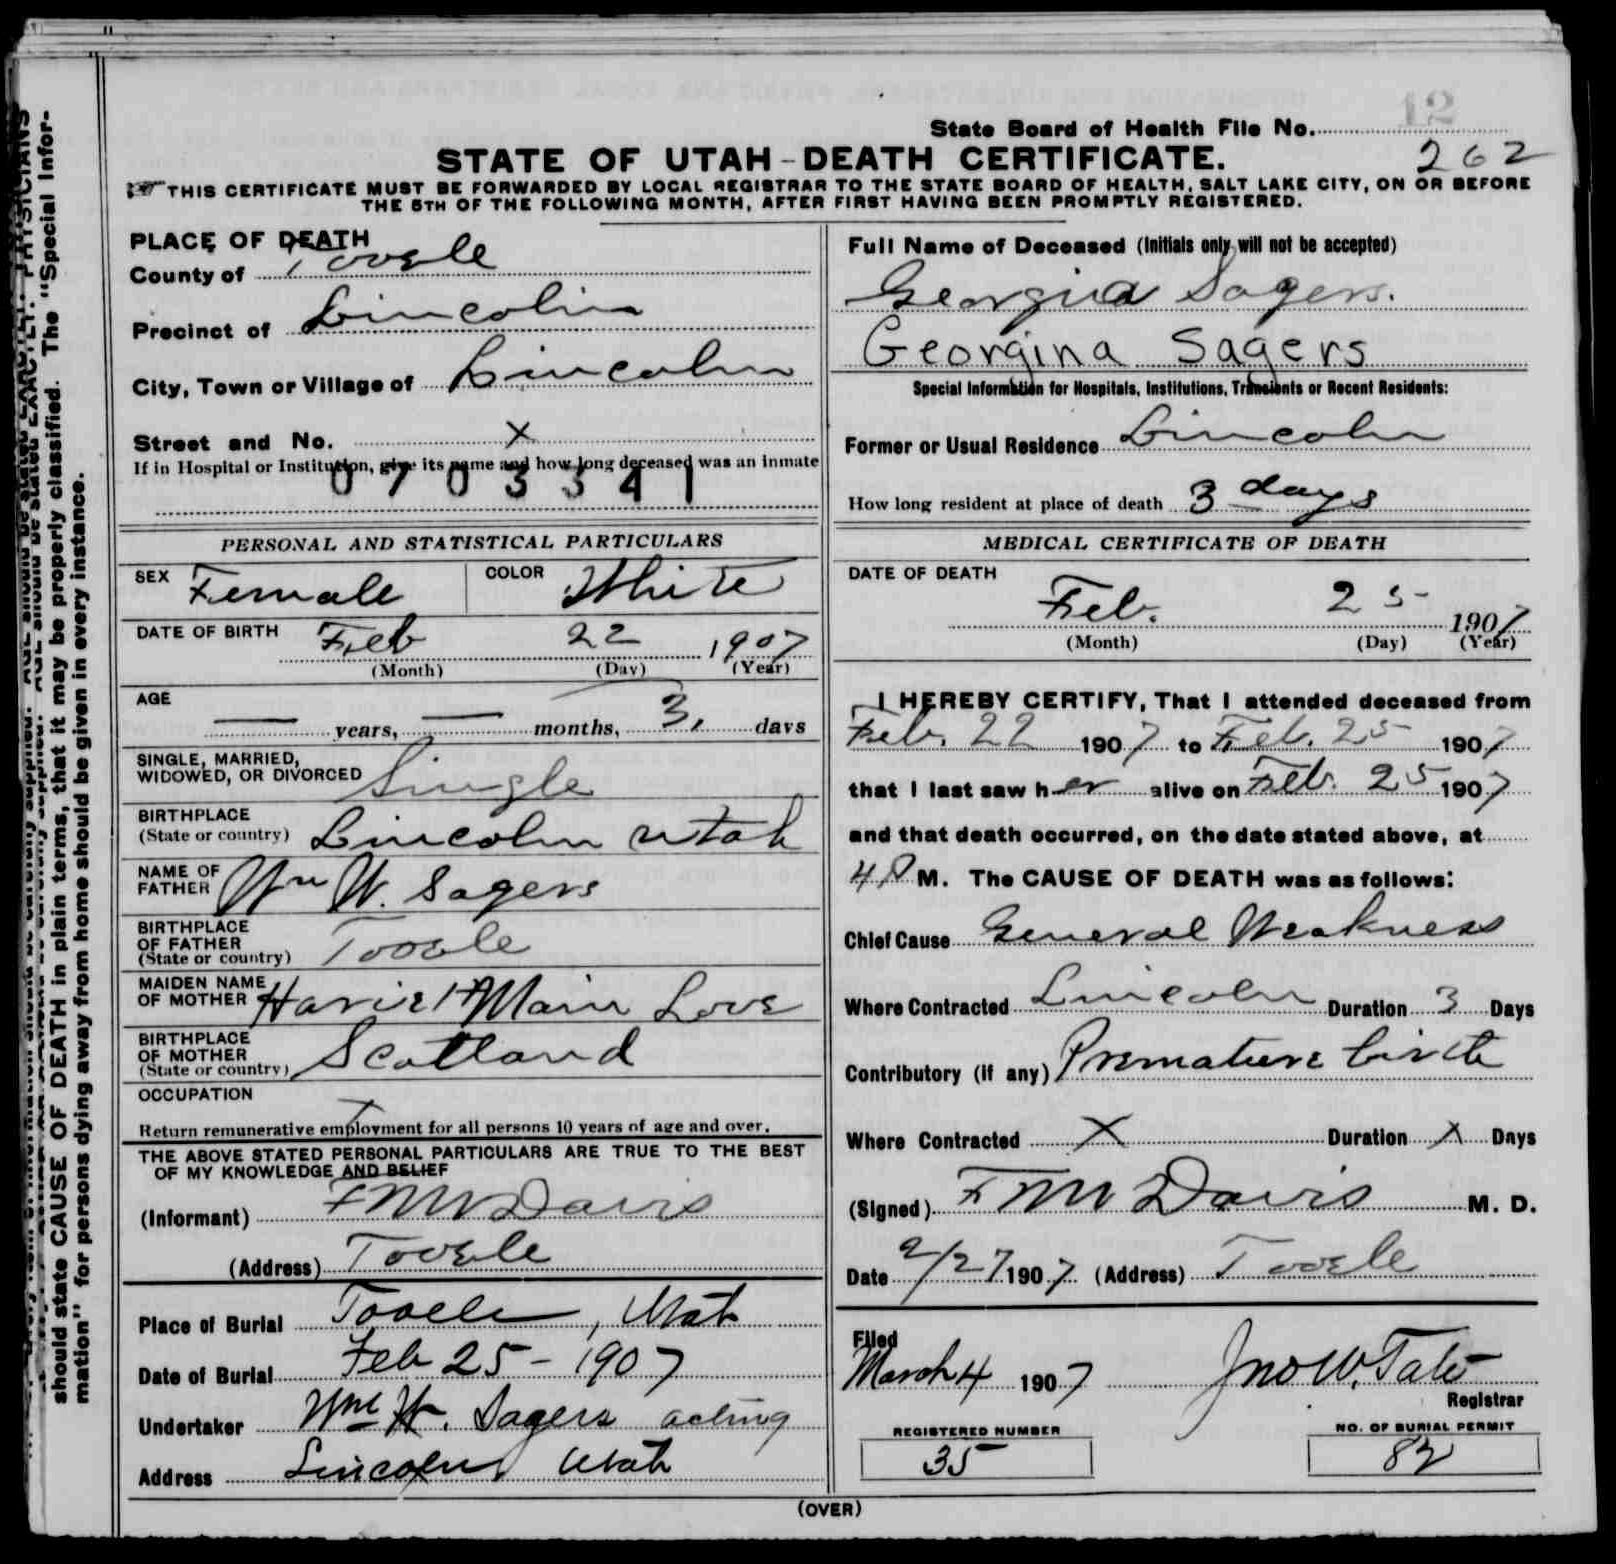 12
State Board of Health File No.
STATE OF UTAH - DEATH CERTIFICATE. 262
THIS CERTIFICATE MUST BE FORWARDED BY LOCAL REGISTRAR TO THE STATE BOARD OF HEALTH, SALT LAKE CITY, ON OR BEFORE
THE 5TH OF THE FOLLOWING MONTH, AFTER FIRST HAVING BEEN PROMPTLY REGISTERED.
PLACE OF DEATH
County of Tooele
Precinct of Lincoln
City, Town or Village of Lincoln
Street and No. X
If in Hospital or Institution, give its name and how long deceased was an inmate
0703341
Full Name of Deceased (Initials only will not be accepted)
Georgina Sagers.
Georgina Sagers
Special Information for Hospitals, Institutions, Transients or Recent Residents:
Former or Usual Residence Lincoln
How long resident at place of death 3 days
PERSONAL AND STATISTICAL PARTICULARS
SEX Female COLOR White
DATE OF BIRTH Feb 22 1907
(Month) (Day) (Year)
AGE
— years, — months, 3, days
SINGLE, MARRIED,
WIDOWED, OR DIVORCED Single
BIRTHPLACE
(State or country) Lincoln Utah
NAME OF
FATHER Wm W. Sagers
BIRTHPLACE
OF FATHER
(State or country) Tooele
MAIDEN NAME
OF MOTHER Love
BIRTHPLACE
OF MOTHER
(State or country) Scotland
OCCUPATION
X
Return remunerative employment for all persons 10 years of age and over.
THE ABOVE STATED PERSONAL PARTICULARS ARE TRUE TO THE BEST
OF MY KNOWLEDGE AND BELIEF
(Informant) F M W Davis
(Address) Tooele
Place of Burial Tooele, Utah
Date of Burial Feb 25 - 1907
Undertaker Wm W. Sagers acting
Address Lincoln Utah
MEDICAL CERTIFICATE OF DEATH
DATE OF DEATH
Feb. 25 1907
(Month) (Day) (Year)
I HEREBY CERTIFY, That I attended deceased from
Feb. 22 1907 to Feb. 25 1907
that I last saw her alive on Feb. 25 1907
and that death occurred, on the date stated above, at
4 P M. The CAUSE OF DEATH was as follows:
Chief Cause General Weakness
Where Contracted Lincoln Duration 3 Days
Contributory (if any) Premature birth
Where Contracted X Duration X Days
(Signed) F M W Davis M. D.
Date 2/27 1907 (Address) Tooele
Filed
March 4 1907 Jno W. Tate
Registrar
REGISTERED NUMBER
35
NO. OF BURIAL PERMIT
82
(OVER)
should state CAUSE OF DEATH in plain terms, that it may be properly classified. The "Special Infor-
mation" for persons dying away from home should be given in every instance.